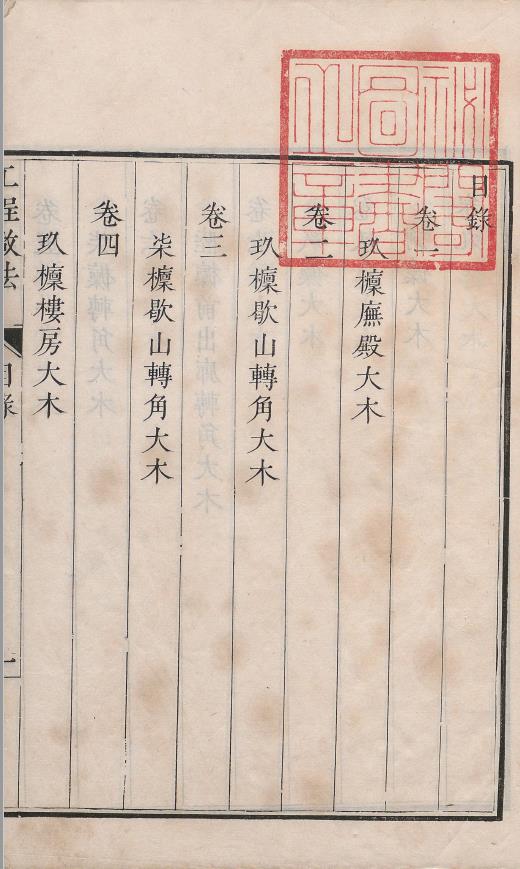 目錄
卷一
玖檩廡殿大木
卷二
玖檩歇山轉角大木
卷三
柒檩歇山轉角大木
卷四
玖檩樓房大木
工程做法
目錄
一